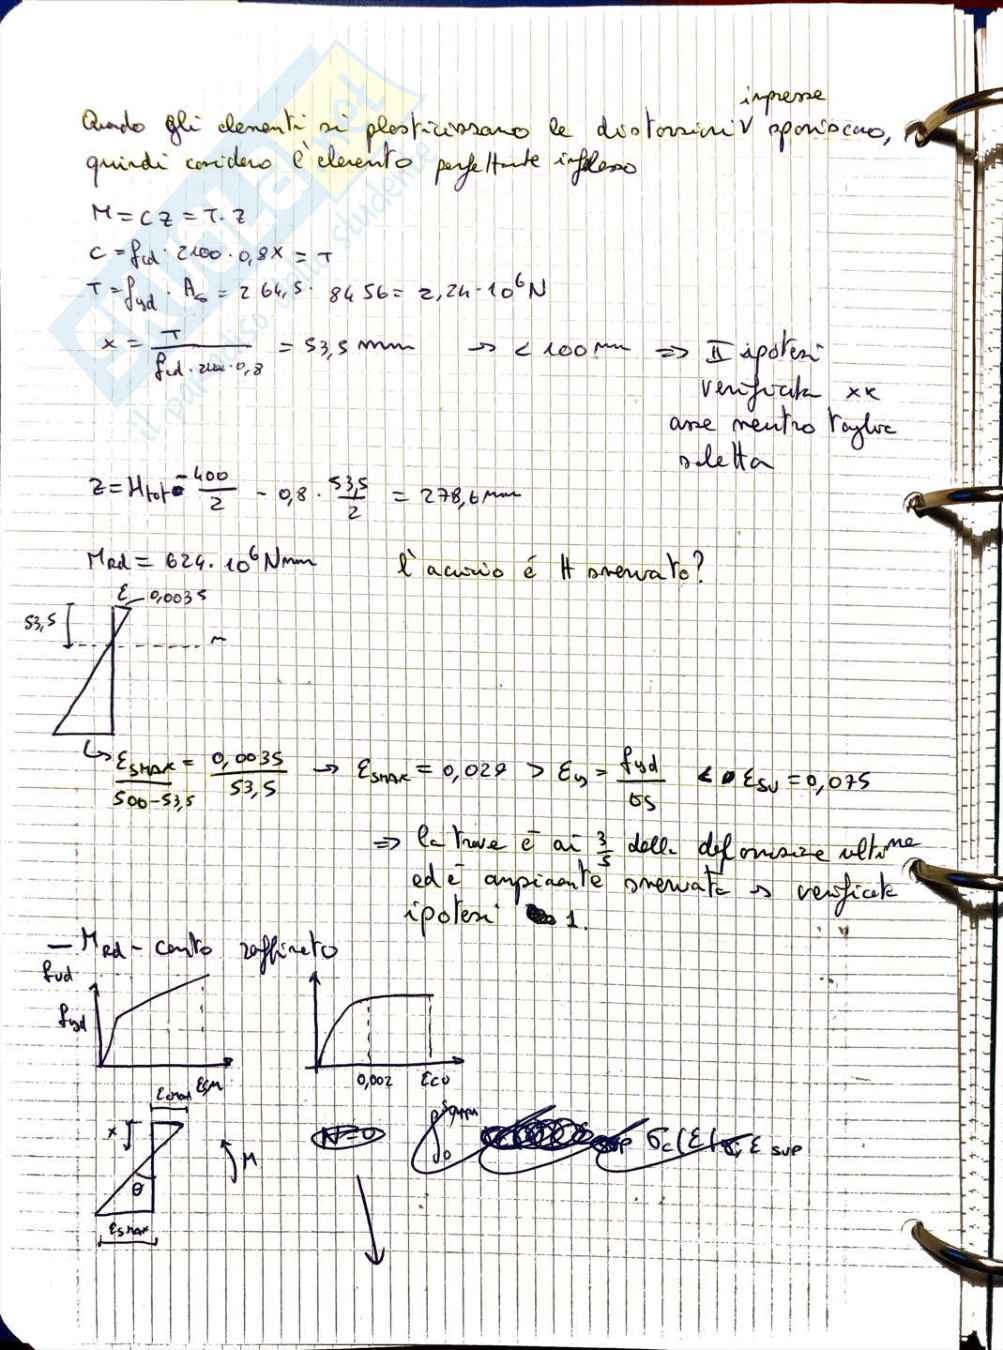 impresse
Quando gli elementi si plasticizzano le distorsioni V spariscono,
quindi considero l'elemento perfettamente inflesso
M = C Z = T · Z
C = fcd · 2100 · 0,8x = T
T = fyd · As = 264,5 · 8456 = 2,24 · 10⁶ N
x = T / fcd · 2100 · 0,8 = 53,5 mm → < 100 mm ⇒ II ipotesi
verificata xk
asse neutro taglia
soletta
Z = Htot - 400/2 - 0,8 · 53,5/2 = 278,6 mm
MRd = 624 · 10⁶ Nmm l'acciaio è # snervato?
ε = 0,0035
53,5
n
↳ εsmax / 500-53,5 = 0,0035 / 53,5 → εsmax = 0,029 > εy = fyd / Es < εsu = 0,075
⇒ la trave è ai 3/5 della deformazione ultima
ed è ampiamente snervata → verificata
ipotesi 1.
— MRd - conto raffinato
fud
fyd
εsu
0,002 εcu
εcmax
x
M
θ
εsmax
N=0
σc(ε) εsup
skuola.net
il paradiso dello studente